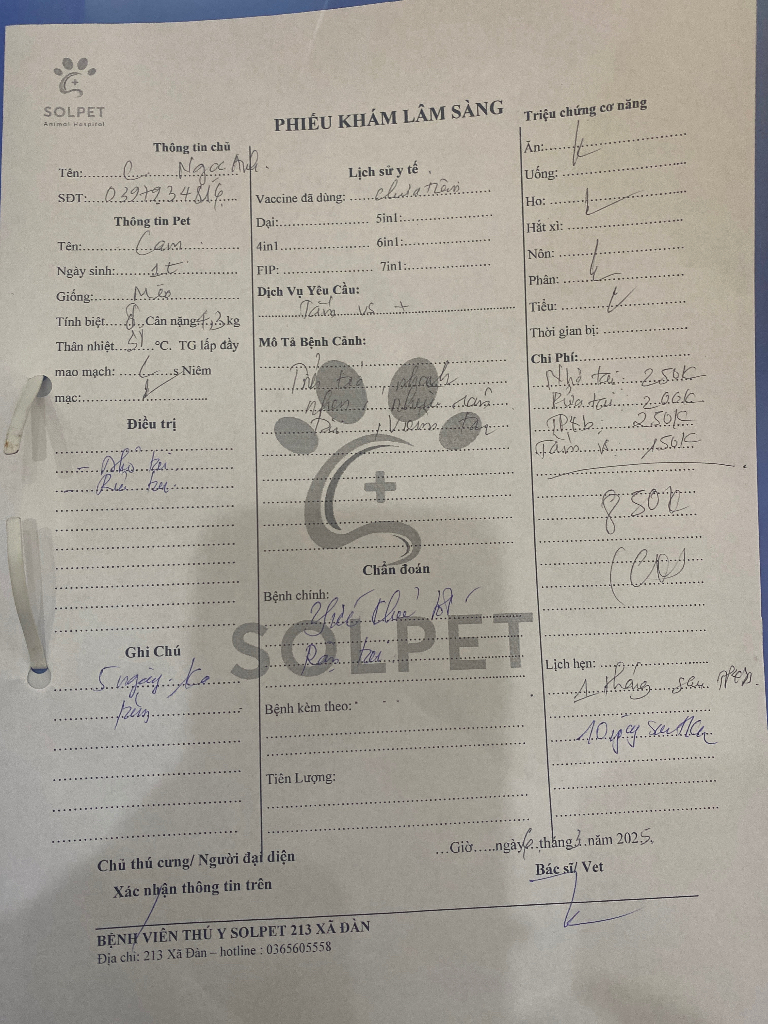 SOLPET
Animal Hospital
PHIẾU KHÁM LÂM SÀNG
Thông tin chủ
Tên: C. Ngọc Anh
SĐT:
Thông tin Pet
Tên: Cam
Ngày sinh: 1t
Giống: Mèo
Tính biệt Cân nặng 4,3 kg
Thân nhiệt °C. TG lấp đầy
mao mạch: s Niêm
mạc:
Điều trị
- Nhổ tai
- Rửa tai
Ghi Chú
5 ngày ko
Lịch sử y tế
Vaccine đã dùng: chưa tiêm
Dại: 5in1:
4in1 6in1:
FIP: 7in1:
Dịch Vụ Yêu Cầu:
Tắm vs +
Mô Tả Bệnh Cảnh:
Tỉnh táo, phách
nhanh, nhiều
, Viêm tai
Chẩn đoán
Bệnh chính:
Rận tai
Bệnh kèm theo:
Tiên Lượng:
Triệu chứng cơ năng
Ăn:
Uống:
Ho:
Hắt xì:
Nôn:
Phân:
Tiểu:
Thời gian bị:
Chi Phí:
Nhổ tai 250K
Rửa tai 200K
250K
Tắm vs 150K
850K
Lịch hẹn:
1 tháng sau
10 ngày sau
SOLPET
Giờ ngày 6 tháng 3 năm 2025
Chủ thú cưng/ Người đại diện
Xác nhận thông tin trên
Bác sĩ/ Vet
BỆNH VIỆN THÚ Y SOLPET 213 XÃ ĐÀN
Địa chỉ: 213 Xã Đàn – hotline : 0365605558